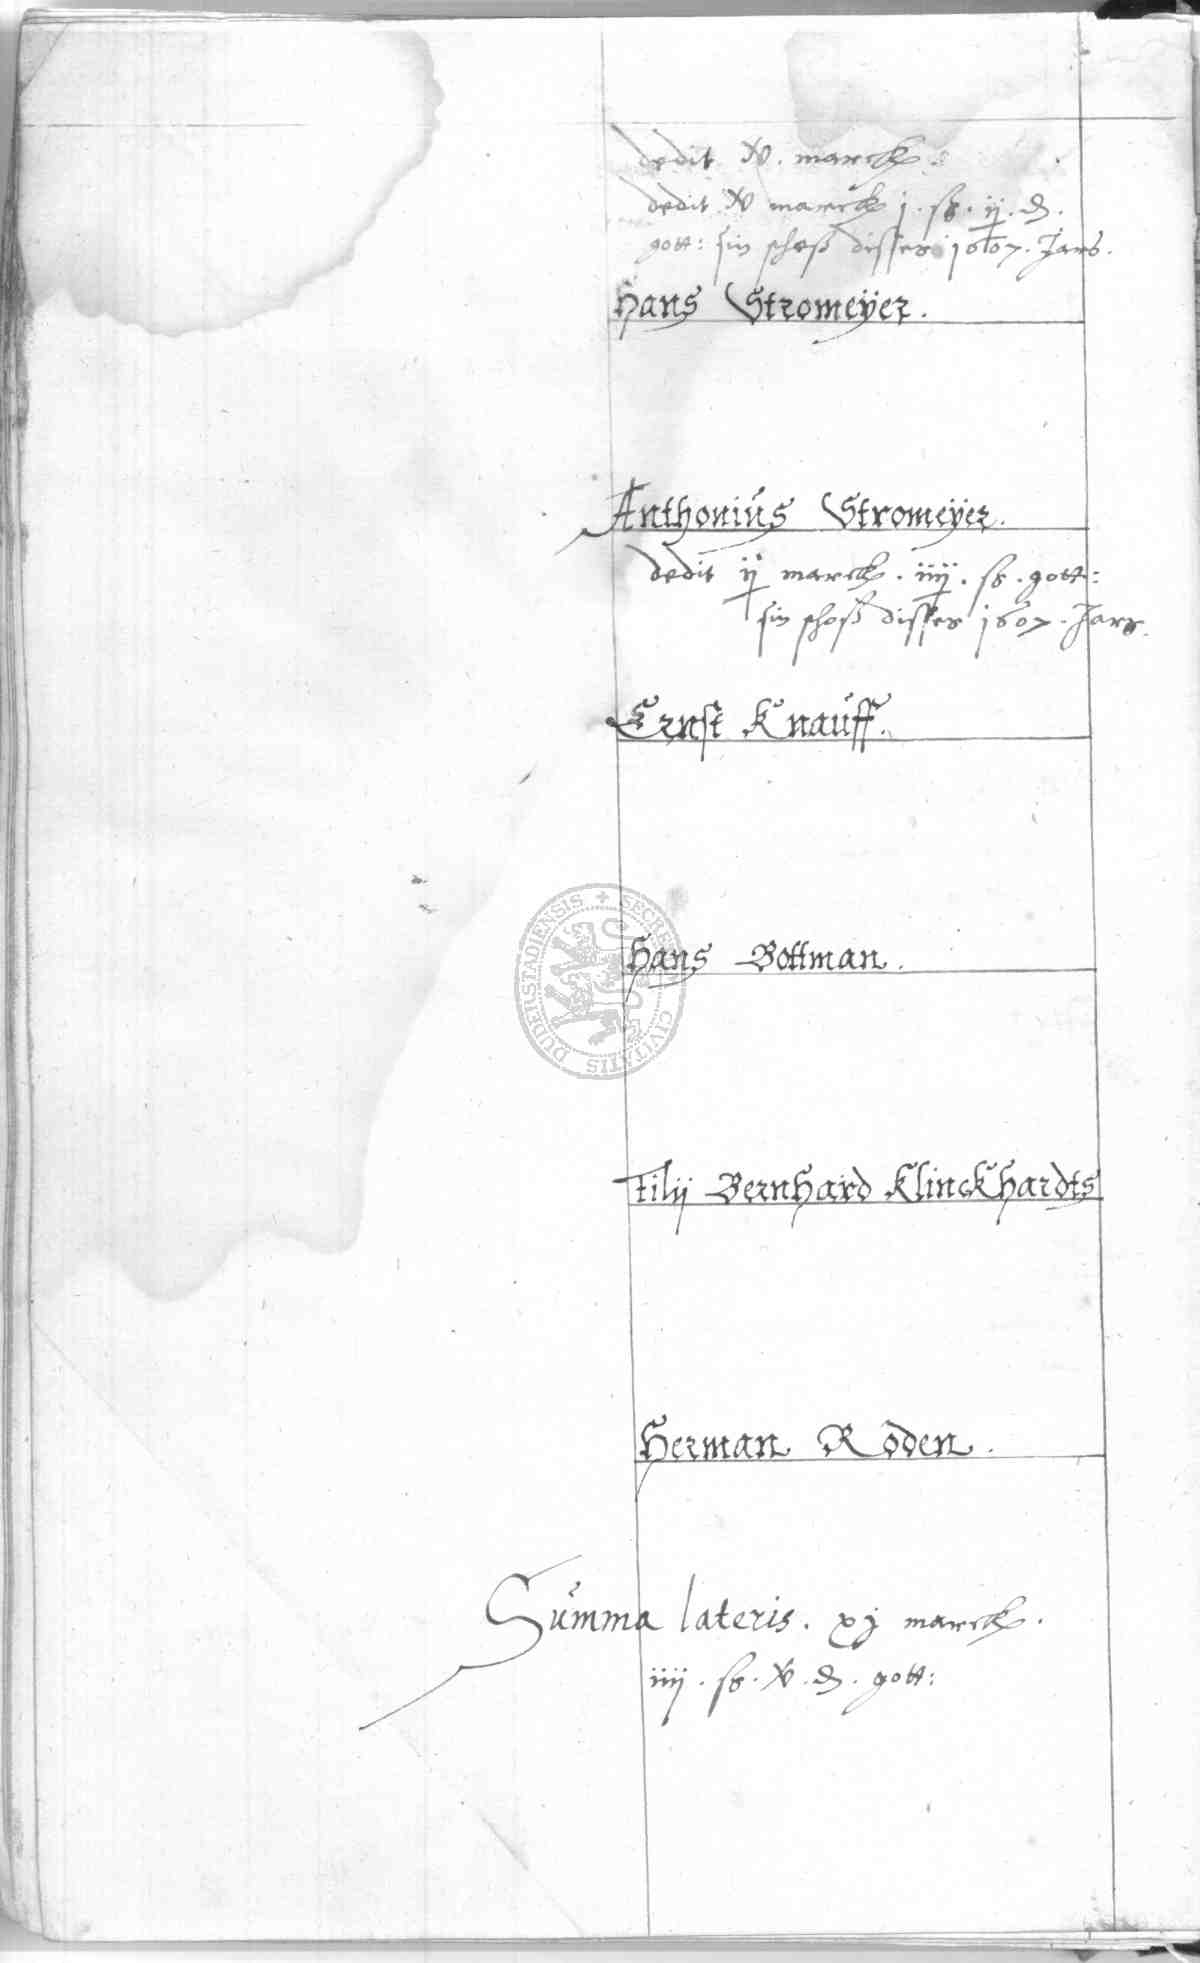 dedit v. marck.
dedit v marck j. ß. ij. ₰.
gott: sin schoß disses 1607. Jars.
Hans Stromeÿer.
Anthonius Stromeÿer.
dedit ij marck. iiij. ß. gott:
sin schoß disses 1607. Jars.
Ernst Knauff.
DUDERSTADIENSIS + SECRET CIVITATIS
Hans Bottman.
Filij Bernhard Klinckhardts
Herman Roden.
Summa lateris. xj marck.
iiij. ß. v. ₰. gott: